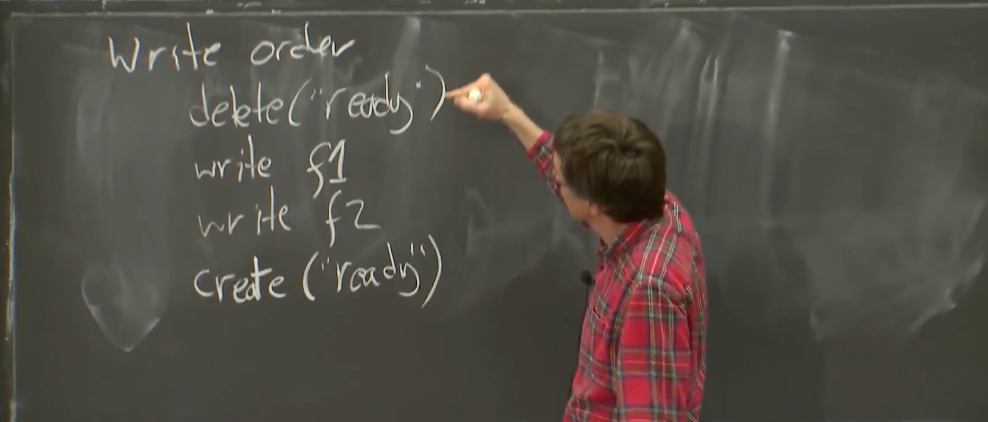 Write order
delete("ready")
write f1
write f2
create("ready")